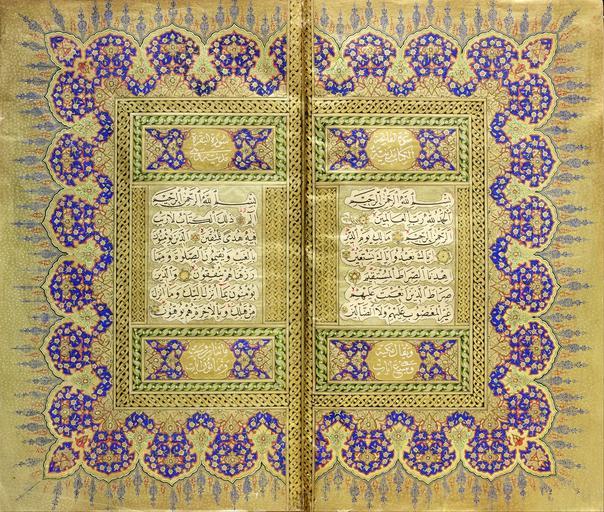 سورة فاتحة
الكتاب
بسم الله الرحمن الرحيم
الحمد لله رب العالمين
الرحمن الرحيم مالك يوم الدين
اياك نعبد واياك نستعين
اهدنا الصراط المستقيم
صراط الذين انعمت عليهم
غير المغضوب عليهم ولا الضالين
ويقال مكية
وهي سبع آيات
سورة البقرة
مدنية وهي
بسم الله الرحمن الرحيم
الم ذلك الكتاب لا ريب
فيه هدى للمتقين الذين يؤمنون
بالغيب ويقيمون الصلوة ومما
رزقناهم ينفقون والذين
يؤمنون بما انزل اليك وما انزل
من قبلك وبالاخرة هم يوقنون
مائتان وست
وثمانون آيات